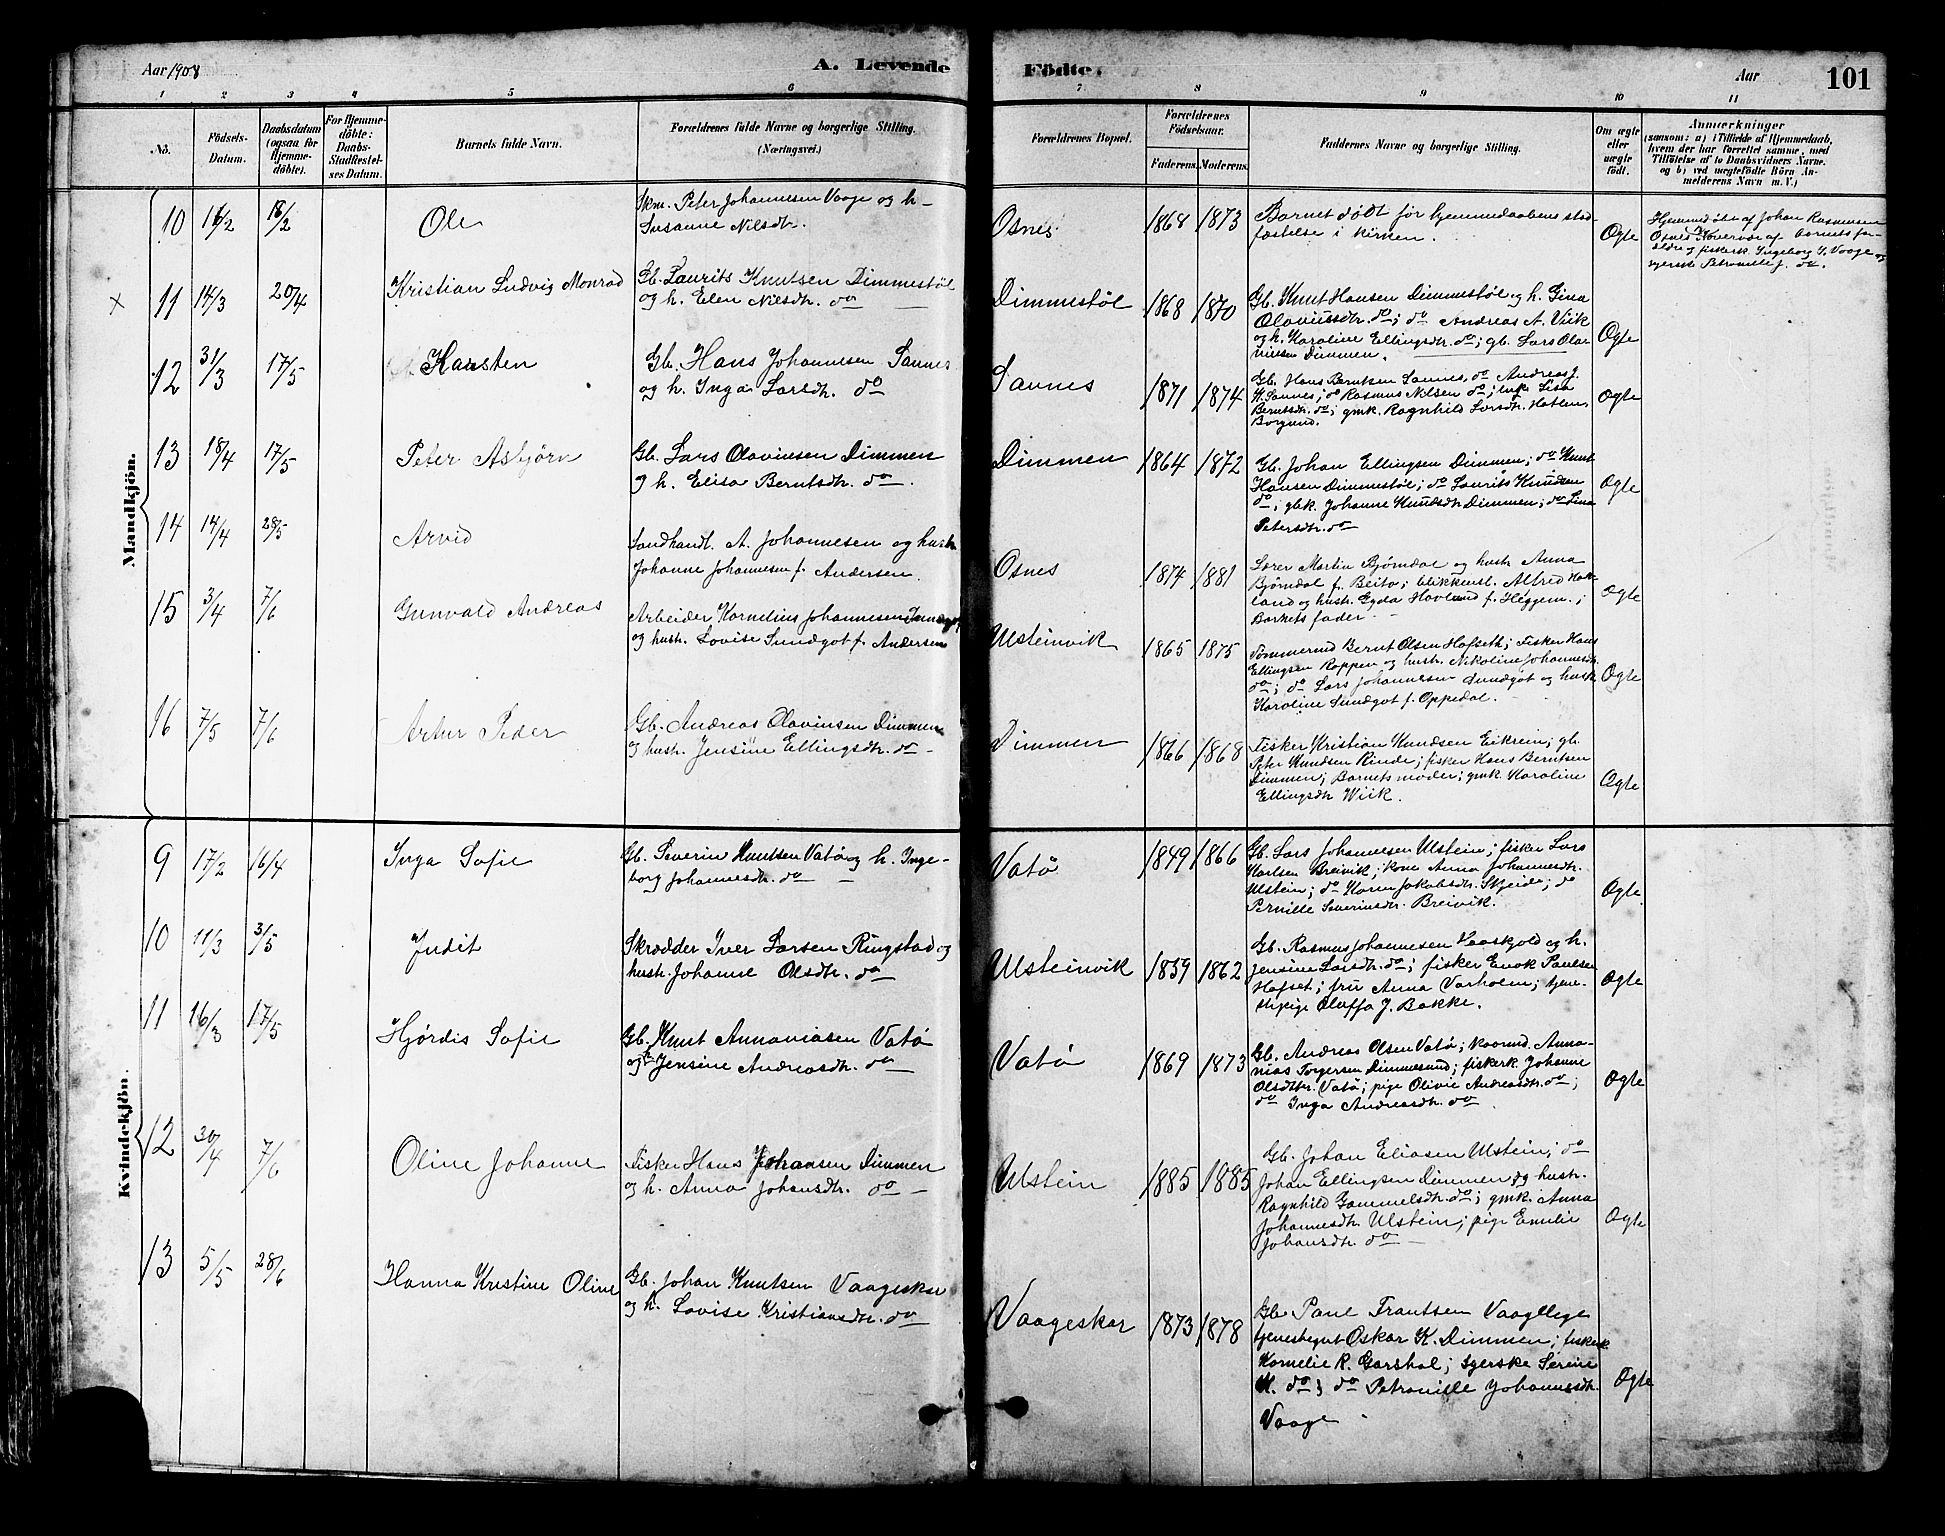 Aar 1908
A. Levende
Fødte.
Aar
101
1 2 3 4 5 6 7 8 9 10 11
No.
Fødsels-Datum.
Daabsdatum (ogsaa for Hjemme-døbte).
For Hjemme-døbte: Daabs-Stadfæstelses Datum.
Barnets fulde Navn.
Forældrenes fulde Navne og borgerlige Stilling. (Næringsvei.)
Forældrenes Bopæl.
Forældrenes Fødselsaar.
Faderens. Moderens.
Faddernes Navne og borgerlige Stilling.
Om ægte eller uægte født.
Anmærkninger
(saasom: a) i Tilfælde af Hjemmedaab,
hvem der har forrettet samme, med
Tilføielse af to Daabsvidners Navne.
og b) ved uægtefødte Børn An-
melderens Navn m. V.)
Mandkjön.
10 16/2 18/2 Ole
Skm. Peter Johannesen Vaage og h-
Susanne Nilsdr.
Osnes 1868 1873
Barnet dødt før hjemmedaabens stad-
fæstelse i kirken.
Ægte
Hjemmedøbt af Johan Rasmussen
Osnes Nærværende af barnets for-
ældre og fiskerk. Ingeborg J. Vaage og
syerske Petronelle J. do.
× 11 14/3 20/4 Kristian Ludvig Monrad
Gb. Laurits Knutsen Dimmestøl
og h. Elen Nilsdr. do
Dimmestøl 1868 1870
Gb. Knut Hansen Dimmestøl og h. Gina
Olaviusdtr. do; do Andreas A. Viik
og h. Karoline Ellingsdtr. do; gb. Lars Ola-
viussen Dimmen.
Ægte
12 31/3 17/5 Karsten
Gb. Hans Johannesen Saunes
og h. Inga Larsdr. do
Saunes 1871 1874
Gb. Hans Berntsen Saunes, do Andreas J.
H. Saunes; do Rasmus Nilsen do; enk. Lisa
Berntsdr. do; gmk. Ragnhild Larsdr. Hatlen
Borgund.
Ægte
13 18/4 17/5 Peter Asbjørn
Gb. Lars Olavinsen Dimmen
og h. Elisa Berntsdr. do.
Dimmen 1864 1872
Gb. Johan Ellingsen Dimmen; do Knut
Hansen Dimmestøl; do Laurits Knudsen
do, gbk. Johanne Knudsdr. Dimmen; do Lina
Petersdtr. do
Ægte
14 14/4 28/5 Arvid
Landhandl. A. Johannesen og hustr.
Johanne Johannesen f. Andersen.
Osnes 1874 1881
Lærer Martin Bjørndal og hustr. Anna
Bjørndal f. Beito; blikkensl. Alfred Hav-
land og hustr. Egda Havland f. Heggem.;
Barnets fader.
Ægte
15 3/4 7/6 Gunvald Andreas
Arbeider Kornelius Johannesen Sundgot
og hustr. Lovise Sundgot f. Andersen
Ulsteinvik 1865 1875
Tømmermd Bernt Olsen Hofseth; Fisker Hans
Ellingsen Roppen og hustr. Nikoline Johannesdr.
do; do Lars Johannesen Sundgot og hustr.
Karoline Sundgot f. Oppedal.
Ægte
16 7/5 7/6 Artur Peder
Gb. Andreas Olavinsen Dimmen
og hustr. Jensine Ellingsdtr. do
Dimmen 1866 1868
Fisker Kristian Knudsen Eikrein; gb.
Peter Knudsen Rinde; fisker Hans Berntsen
Dimmen; Barnets moder; gmk. Karoline
Ellingsdtr Wiik.
Ægte
Kvindekjön.
9 17/2 16/4 Inga Sofie
Gb. Severin Knutsen Vatø og h. Inge-
borg Johannesdr. do
Vatø 1849 1866
Gb. Lars Johannesen Ulstein; fisker Lars
Karlsen Breivik; kone Anna Johannesdr.
Ulstein; do Karen Jakobsdr. Skjeide; do
Pernille Severinsdr. Breivik.
Ægte
10 11/3 3/5 Judit
Skrædder Iver Larsen Ringstad og
hustr. Johanne Olsdtr. do
Ulsteinvik 1859 1862
Gb. Rasmus Johannesen Haaskjold og h.
Jensine Larsdr. do; fisker Enok Paulsen
Hofset; fru Anna Varholm; tjene-
stepige Oluffa J. Bakke.
Ægte
11 16/3 17/5 Hjørdis Sofie
Gb. Knut Annaniasen Vatø
og h. Jensine Andreasdtr. do
Vatø 1869 1873
Gb. Andreas Olsen Vatø; kaarmd. Anna-
nias Torgersen Dimmesund; fiskerk. Johanne
Olsdtr. Vatø; pige Olivie Andreasdtr. do;
do Inga Andreasdtr. do.
Ægte
12 30/4 7/6 Oline Johanne
Fisker Hans Johansen Dimmen
og h. Anna Johansdtr. do
Ulstein 1885 1885
Gb. Johan Eliasen Ulstein; do
Johan Ellingsen Dimmen og hustr.
Ragnhild Gammelsdtr. do; gmk. Anna
Johannesdtr. Ulstein; pige Emilie
Johansdtr. do
Ægte
13 5/5 28/6 Hanna Kristine Oline
Gb. Johan Knutsen Vaageskar
og h. Lovise Kristiansdtr. do
Vaageskar 1873 1878
Gb. Paul Frantsen Vaag
tjenestegut Oskar K. Dimmen; fiskerk.
Kornelie R. Garshol; syerske Serine
K. do; do Petronille Johannesdtr.
Vaage.
Ægte